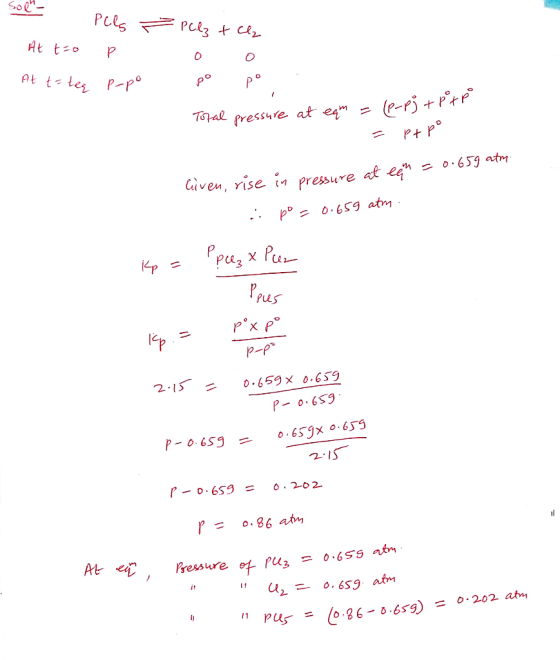 Solⁿ-
PCl5 ⇌ PCl3 + Cl2
At t=0 P 0 0
At t=teq P-p° p° p°
Total pressure at eqᵐ = (P-p°)+p°+p°
= P+p°
Given, rise in pressure at eqᵐ = 0.659 atm
∴ p° = 0.659 atm.
Kp = P PCl3 × PCl2 / P PCl5
Kp = p° × p° / P-p°
2.15 = 0.659 × 0.659 / P-0.659
P-0.659 = 0.659 × 0.659 / 2.15
P-0.659 = 0.202
P = 0.86 atm
At eqᵐ, Pressure of PCl3 = 0.659 atm
" " Cl2 = 0.659 atm
" " PCl5 = (0.86-0.659) = 0.202 atm